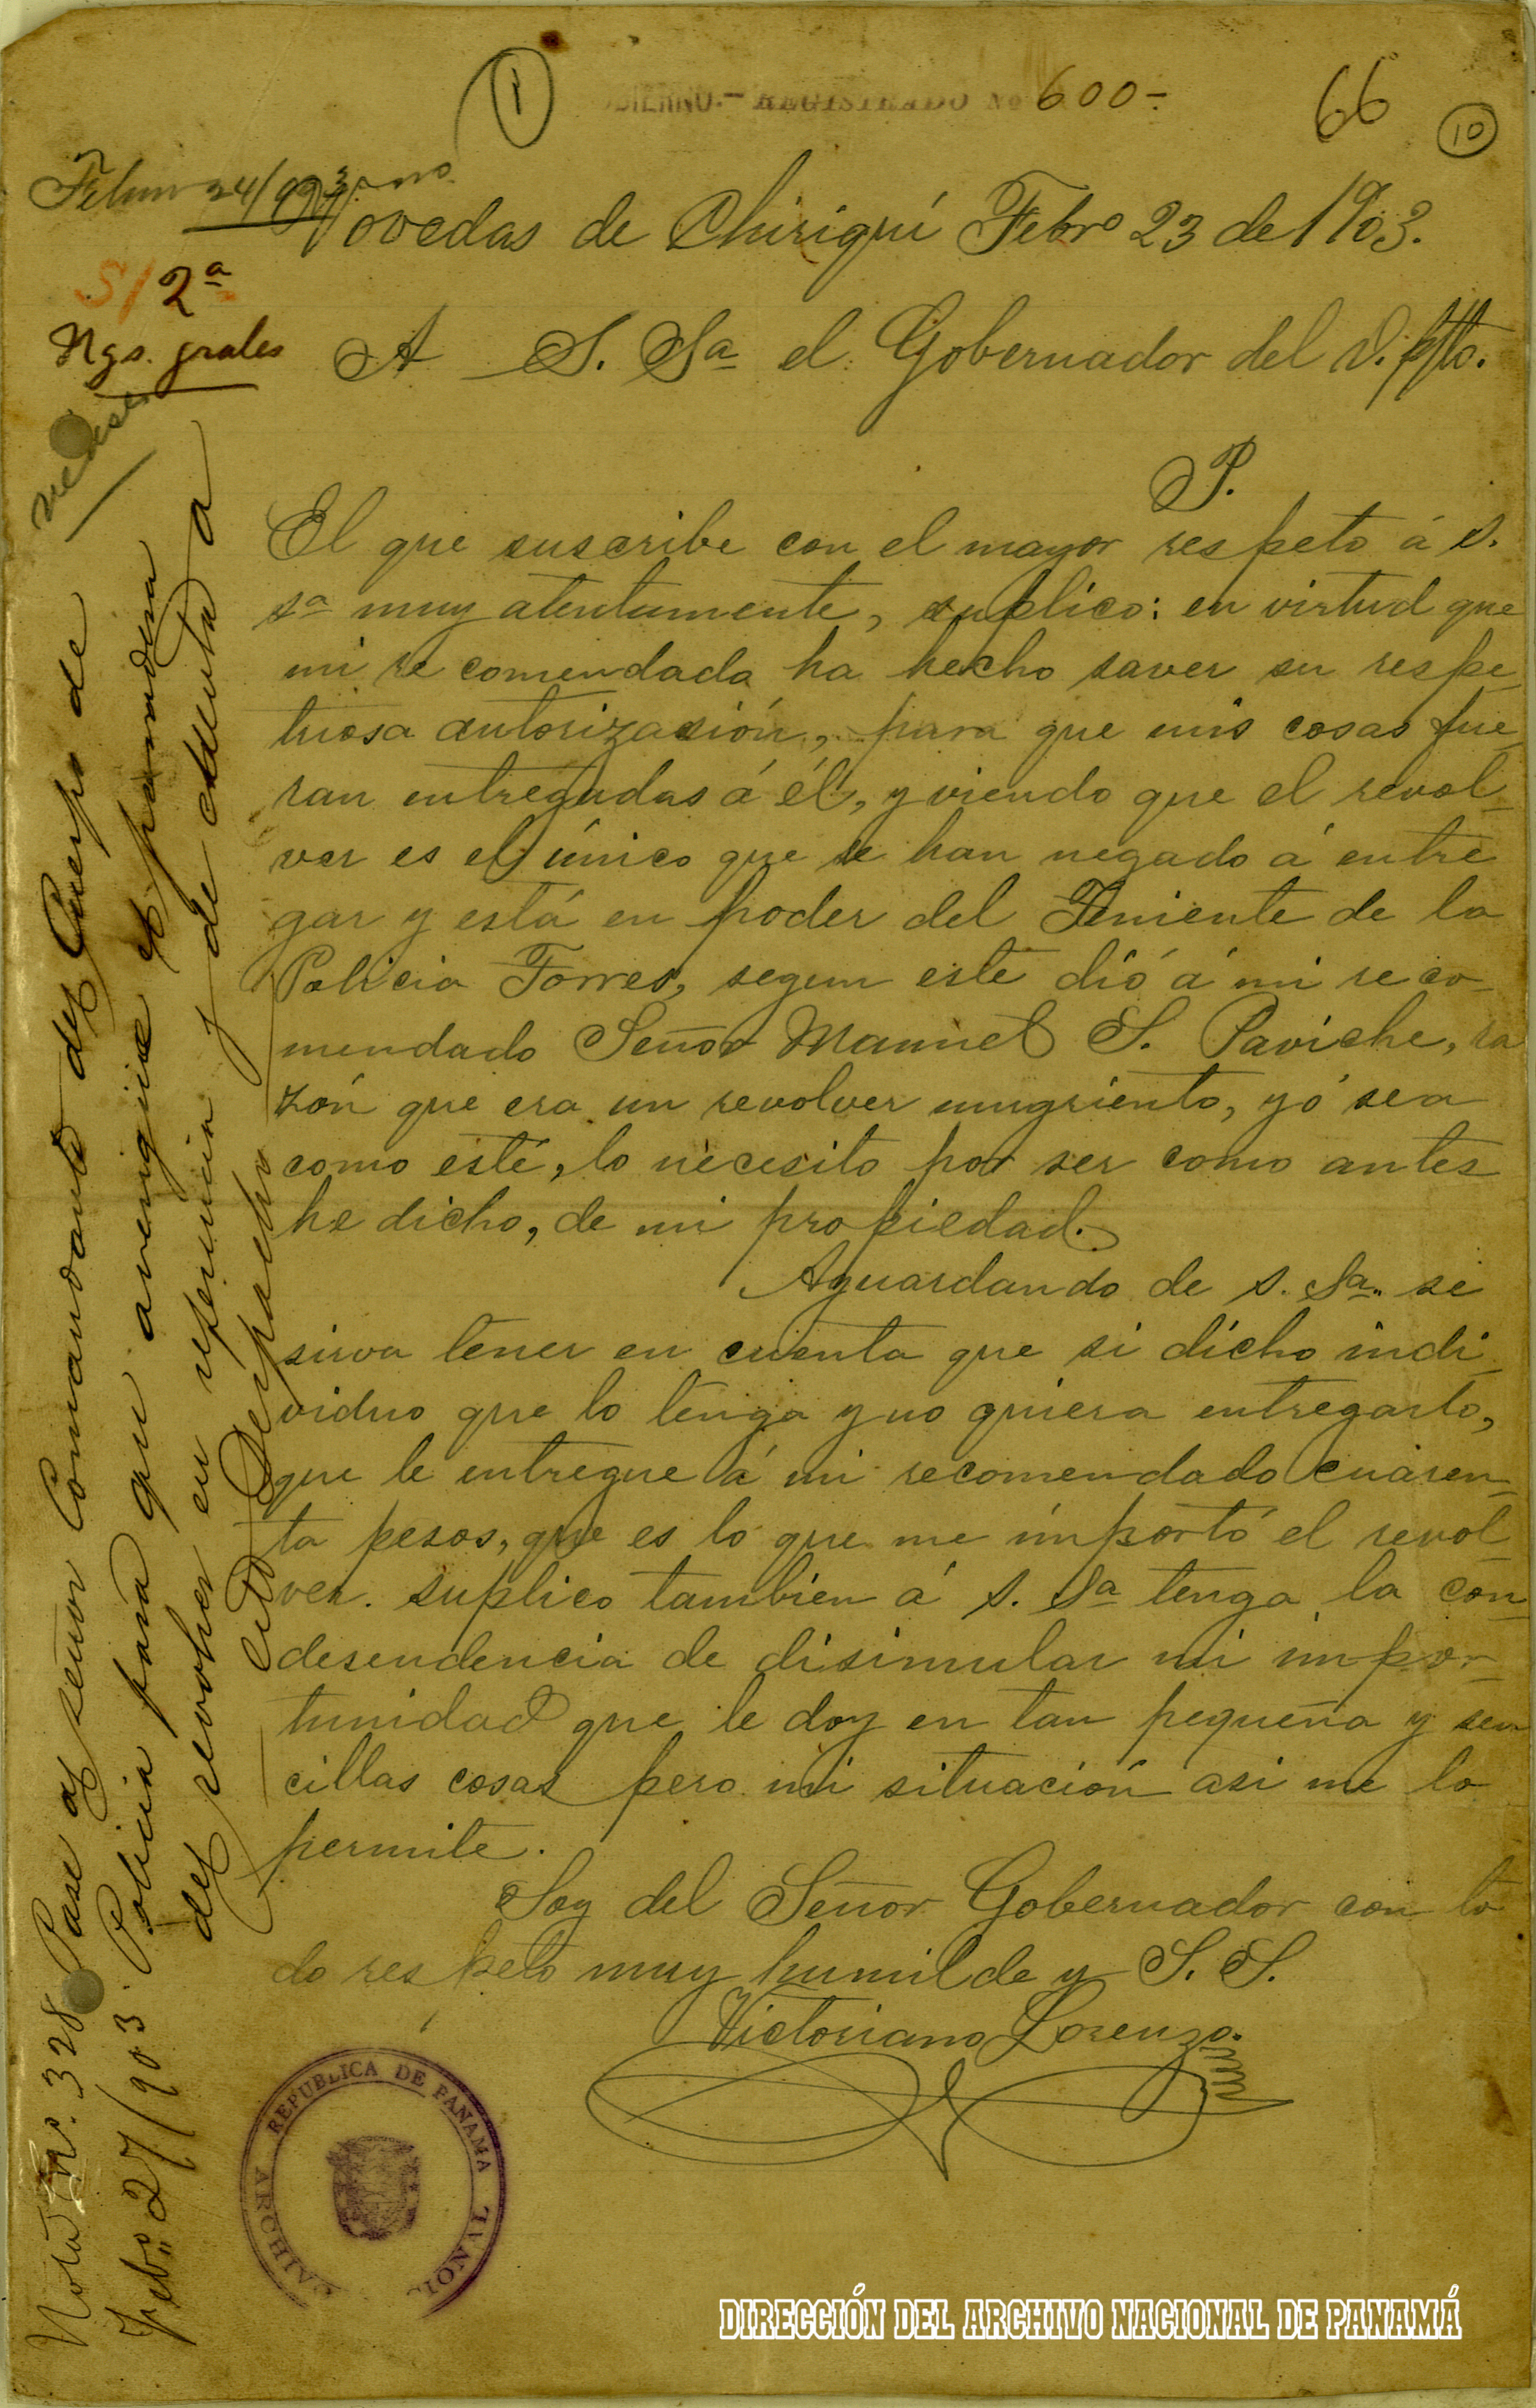 1
GOBIERNO.- REGISTRADO No 600-
66
10
24/903
Bovedas de Chiriquí Febro 23 de 1903.
S/ 2ª
Ngs. grales
A S. Sa el Gobernador del D.ptto.
P.
El que suscribe con el mayor respeto á S.
sa muy atentamente, suplico: en virtud que
mi recomendada ha hecho saver su respe-
tuosa autorización, para que mis cosas fue-
ran entregadas á él, y viendo que el revol-
ver es el único que se han negado á entre
gar y está en poder del Teniente de la
Policia Torres, segun este dió á mi reco-
mendado Señor Manuel S. Paviche, ra
zón que era un revolver mugriento, yó sea
como esté, lo necesito por ser como antes
he dicho, de mi propiedad.
Aguardando de S. Sa. se
sirva tener en cuenta que si dicho indi
viduo que lo tenga y no quiera entregarlo,
que le entregue á mi recomendado cuaren-
ta pesos, que es lo que me importó el revol-
ver. suplico tambien á S. Sa tenga la con-
desendencia de disimular mi impor-
tunidad que le doy en tan pequeña y sen
cillas cosas pero mi situación asi me lo
permite.
Soy del Señor Gobernador con to
do respeto muy humilde y S. S.
Victoriano Lorenzo.
Nota No. 328 Pase al señor Comandante del Cuerpo de
Feb. 27/903. Policia para que averigüe el paradero
del revolver en referencia y de cuenta a
este Despacho
REPUBLICA DE PANAMA
ARCHIVO NACIONAL
DIRECCIÓN DEL ARCHIVO NACIONAL DE PANAMÁ